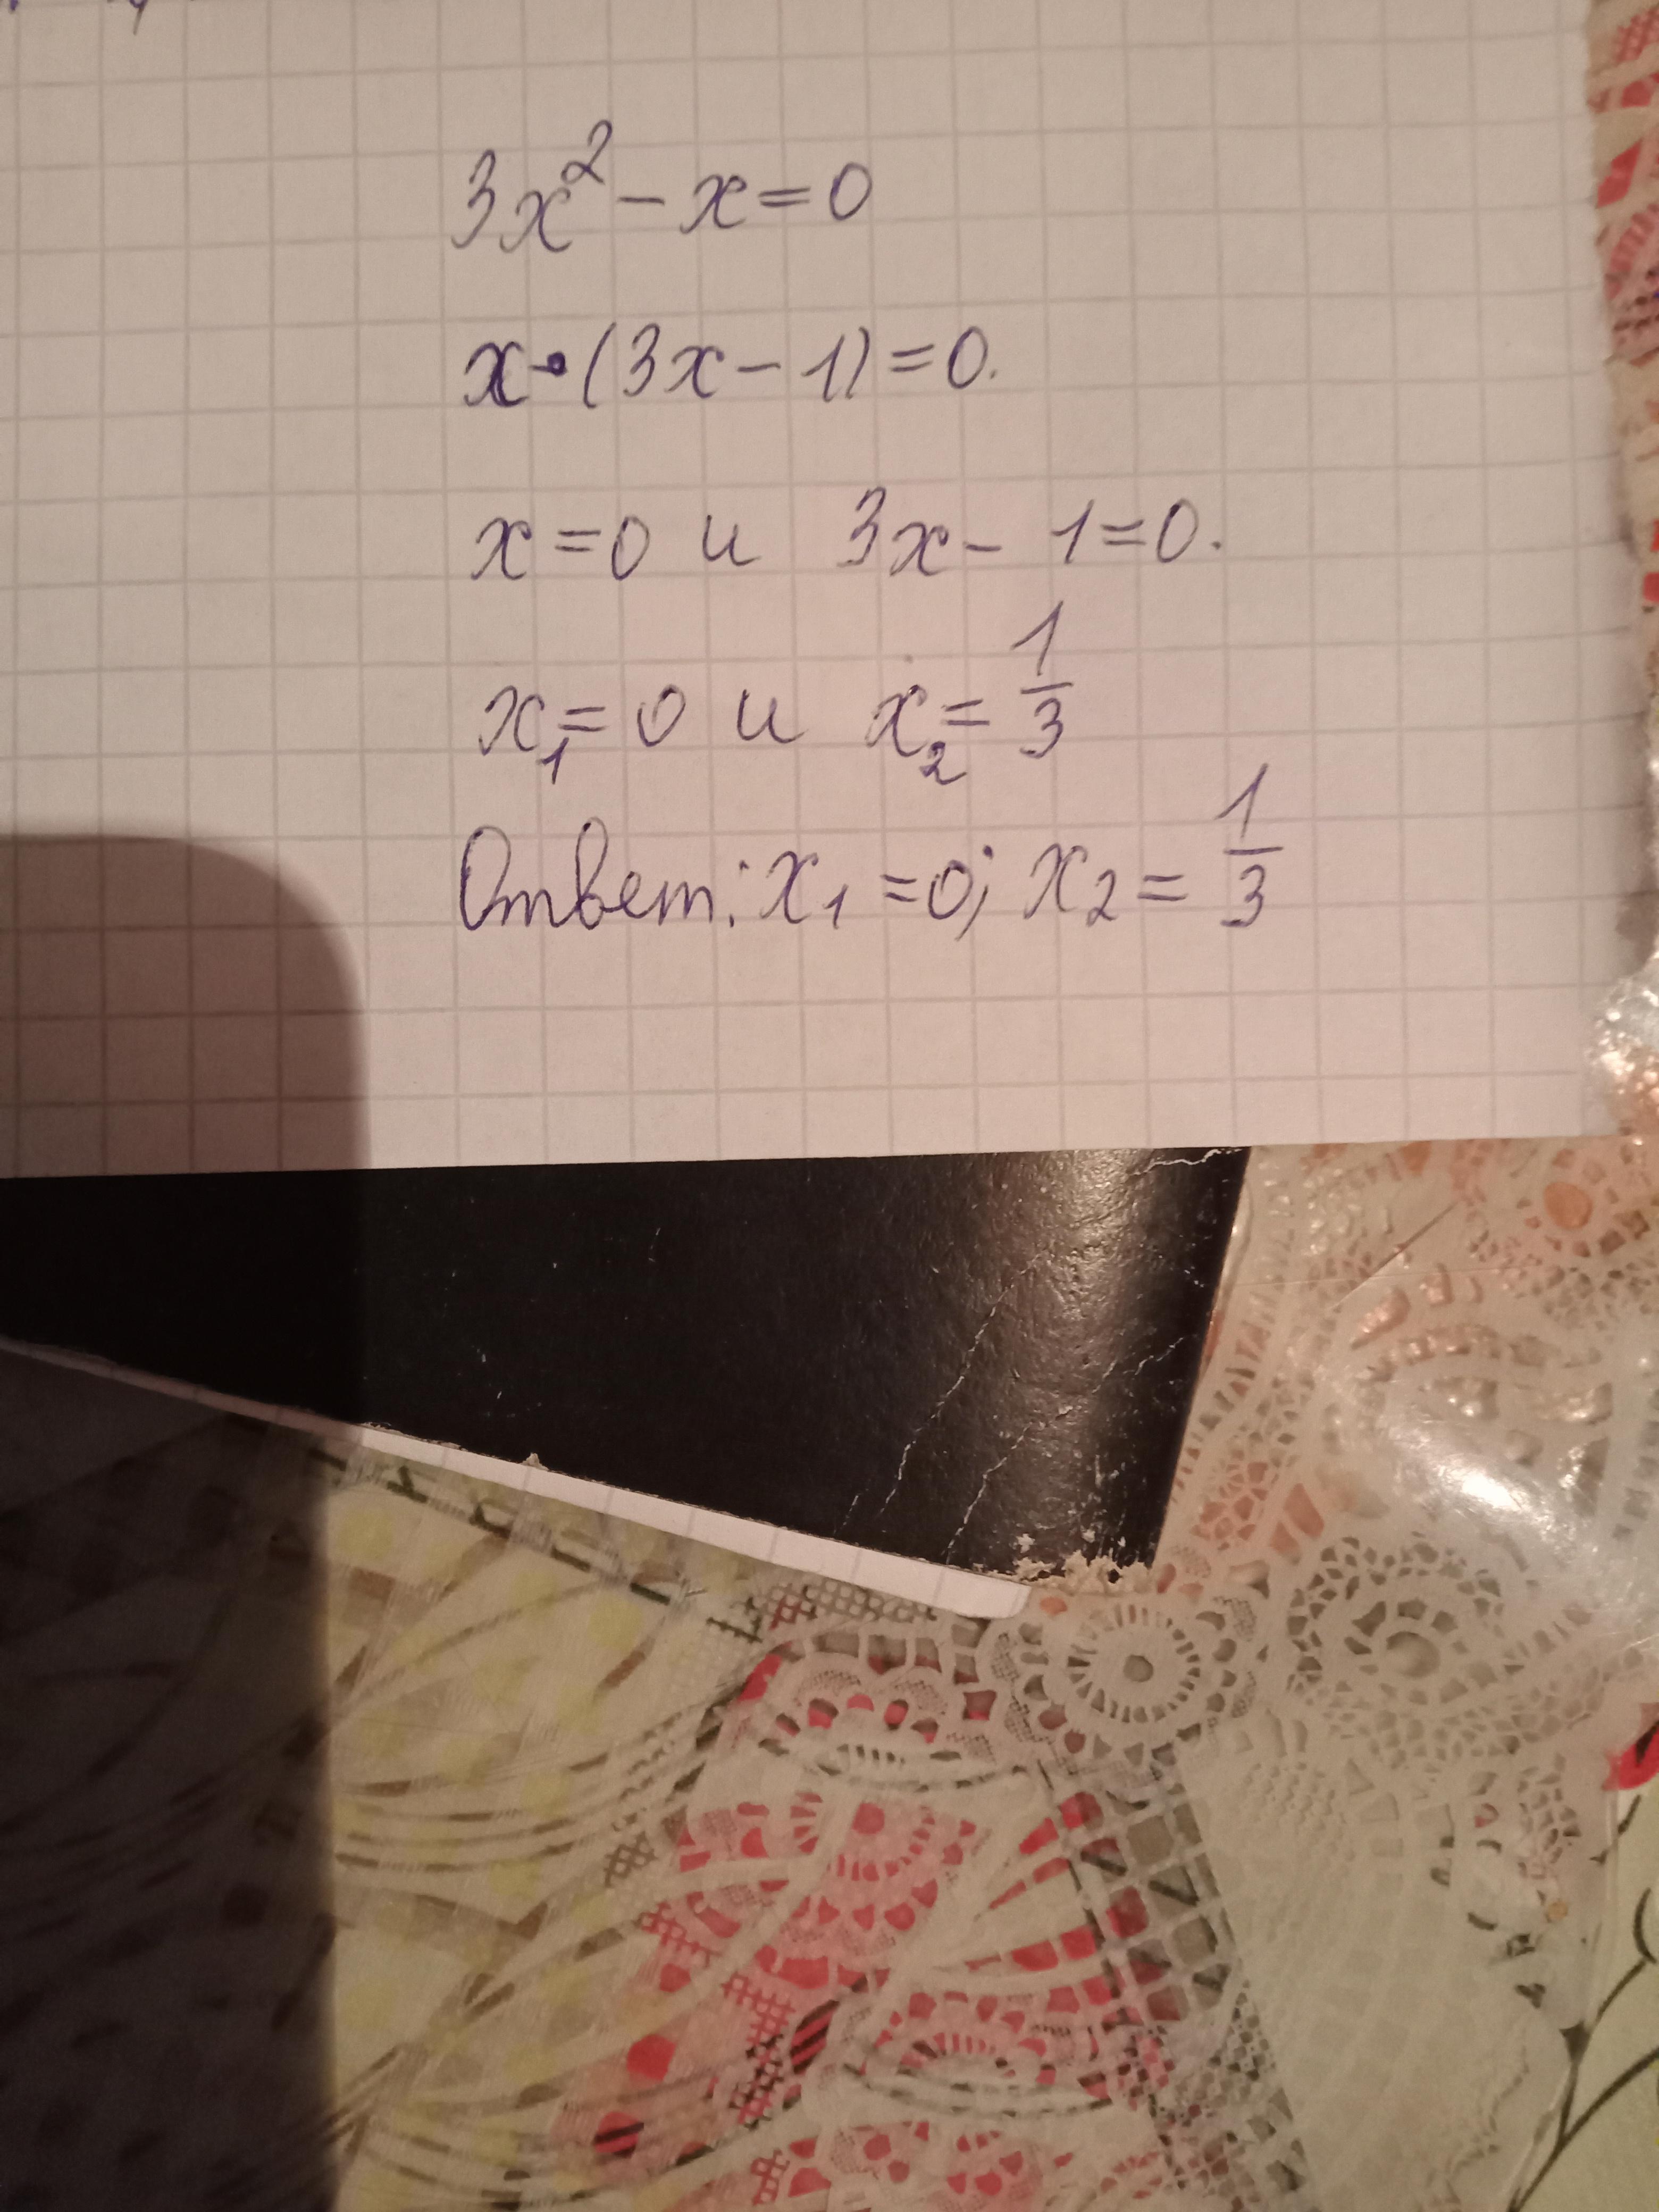 3x² - x = 0
x • (3x - 1) = 0.
x = 0 и 3x - 1 = 0.
x₁ = 0 и x₂ = 1/3
Ответ: x₁ = 0; x₂ = 1/3